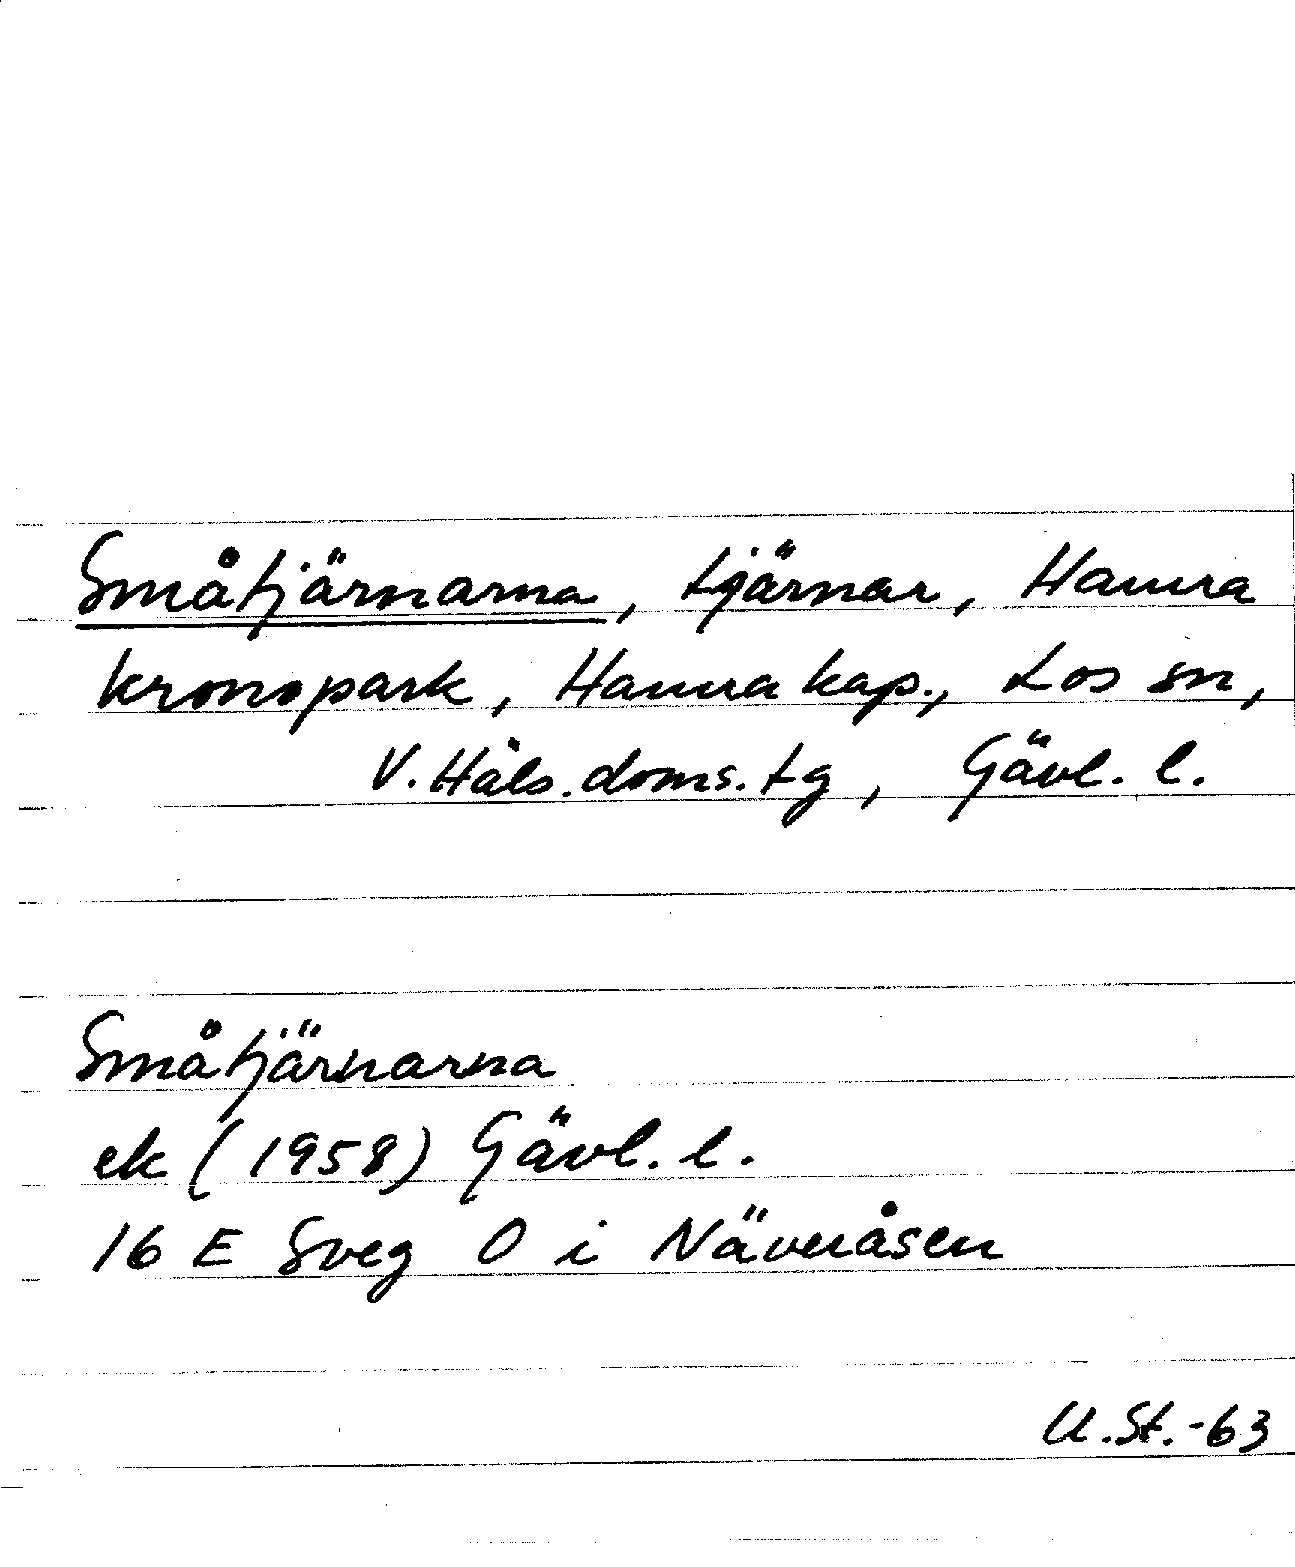 Småtjärnarna, tjärnar, Hamra
kronopark, Hamra kap., Los sn,
V. Häls. doms. tg, Gävl. l.
Småtjärnarna
ek (1958) Gävl. l.
16 E Sveg O i Näveråsen
U. St. -63